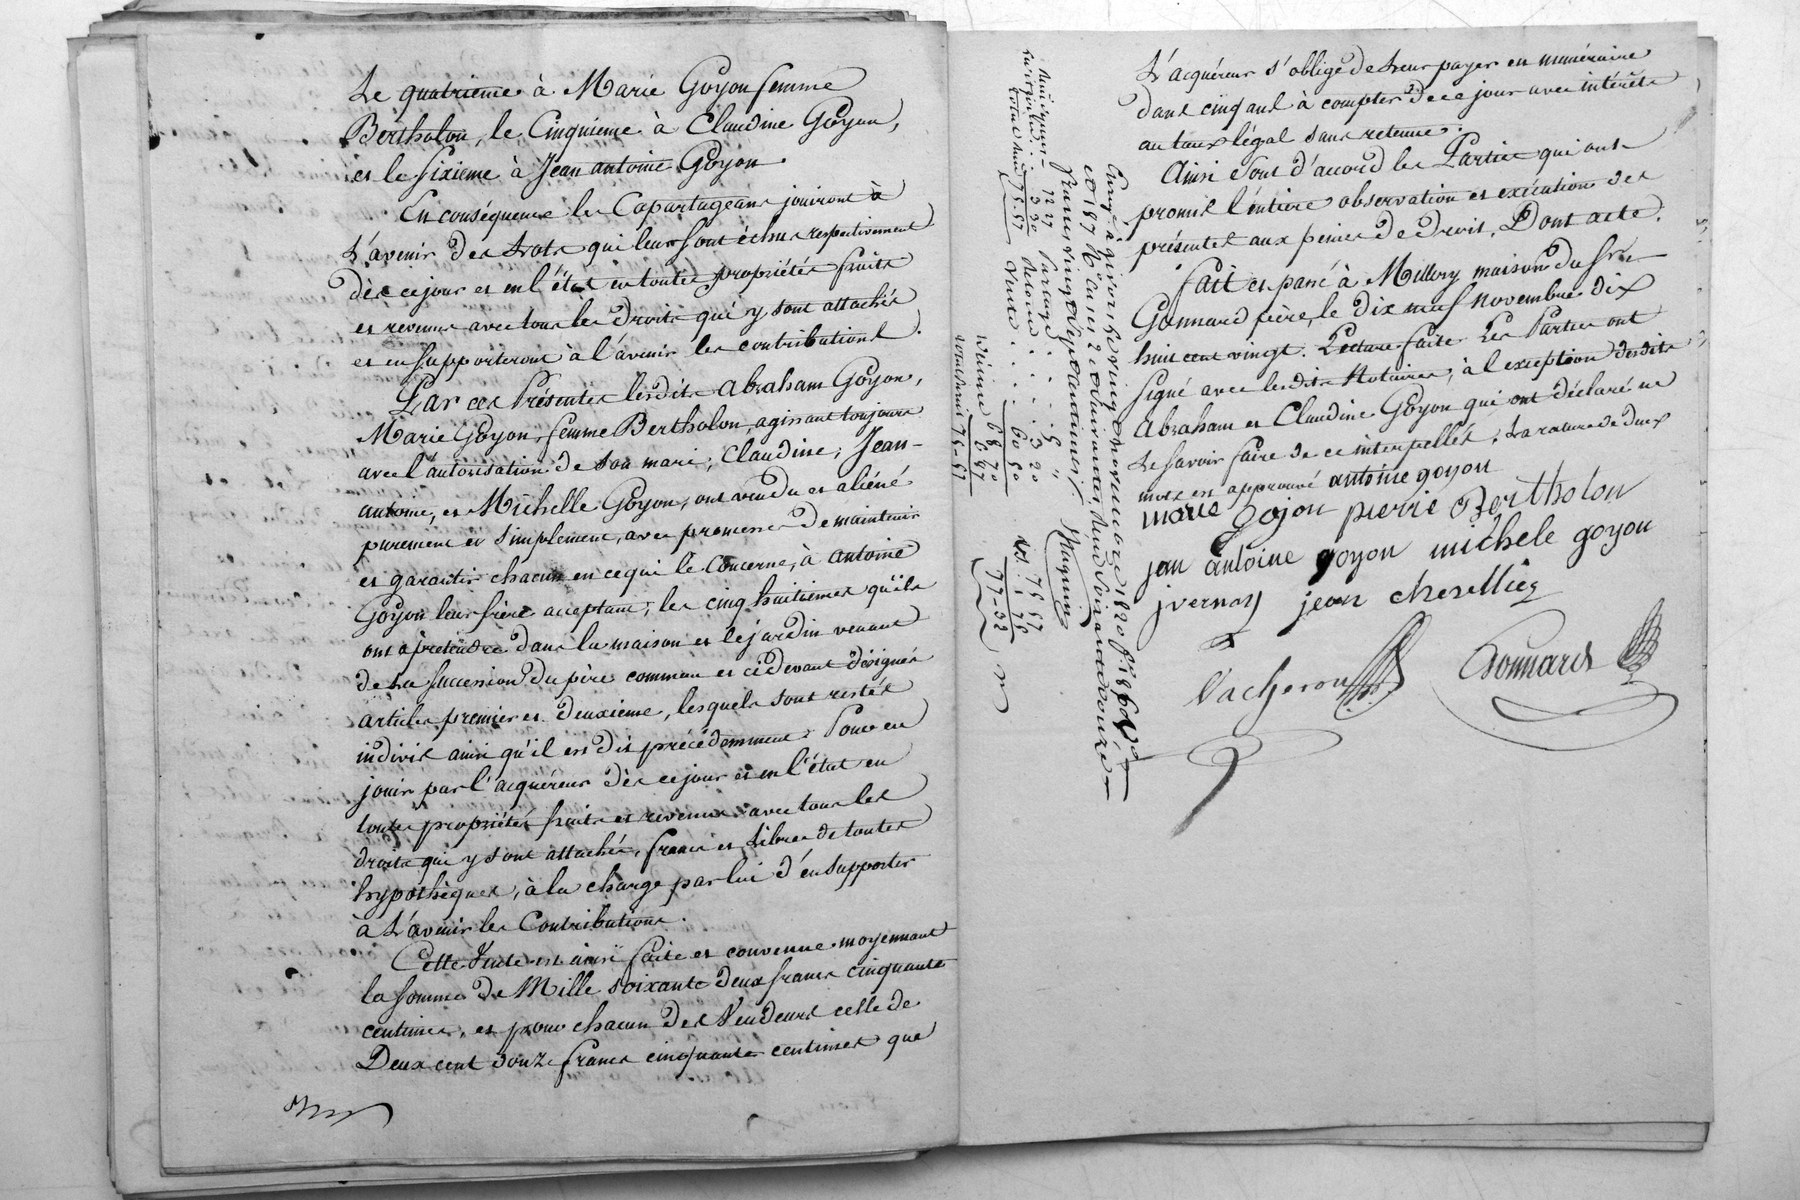 Le quatrieme à Marie Goyon femme
Bertholon, le Cinquieme à Claudine Goyon,
et le Sixieme à Jean antoine Goyon.
En conséquence les Copartageans jouiront à
L'avenir des Lots qui leur sont échus respectivement
dès ce jour et en l'état en toutes propriétés fruits
et revenus avec tous les droits qui y sont attachés
et en supporteront à l'avenir les contributions.
Par ces Présentes lesdits abraham Goyon,
Marie Goyon femme Bertholon, agissant toujours
avec l'autorisation de son mari, Claudine, Jean-
antoine, et Michelle Goyon, ont vendu et aliéné
purement et simplement, avec promesse de maintenir
et garantir chacun en ce qui le Concerne, à antoine
Goyon leur frère acceptant, les cinq huitiemes qu'ils
ont à prétendre dans la maison et le jardin venant
de la succession du père commun et cidevant désignés
articles premier et deuxieme, lesquels sont restés
indivis ainsi qu'il est dit précédemment. Pour en
jouir par l'acquéreur dès ce jour et en l'état en
toutes propriétés fruits et revenus avec tous les
droits qui y sont attachés, francs et Libres de toutes
hypothèques, à la charge par lui d'en supporter
à L'avenir les Contributions.
Cette Vente est ainsi faite et convenue moyennant
la somme de Mille soixante deux francs cinquante
centimes, et pour chacun des Vendeurs celle de
Deux cent douze francs cinquante centimes que
L'acquéreur s'oblige de Leur payer en numéraire
dans cinq ans à compter de ce jour avec intérêts
au taux légal sans retenue.
Ainsi sont d'accord les Parties qui ont
promis l'entière observation et exécution des
présentes aux peines de droit. Dont acte.
fait et passé à Millery maison du Sr
Gonnard père, le dix neuf novembre dix
huit cent vingt. Lecture faite Les Parties ont
signé avec lesdits Notaires, à l'exception desdits
abraham et Claudine Goyon qui ont déclaré ne
Le savoir faire de ce interpellés. La rature de deux
mots est approuvé antoine goyon
marie goyon pierre Bertholon
jan antoine goyon michele goyon
jvernay jean cheselliez
Vacheron Gonnard
Enregé à givors le vingt novembre 1820 fo 186 Vo
et 187 Ro Cases 2 et suivantes, Reçu soixante douze
francs vingt sept centimes.
Partage . . . 5 "
Retour . . . 3 20
Vente . . . 60 50
68 70
Dixième 6 87
75-57
75 57
1 75
77-32